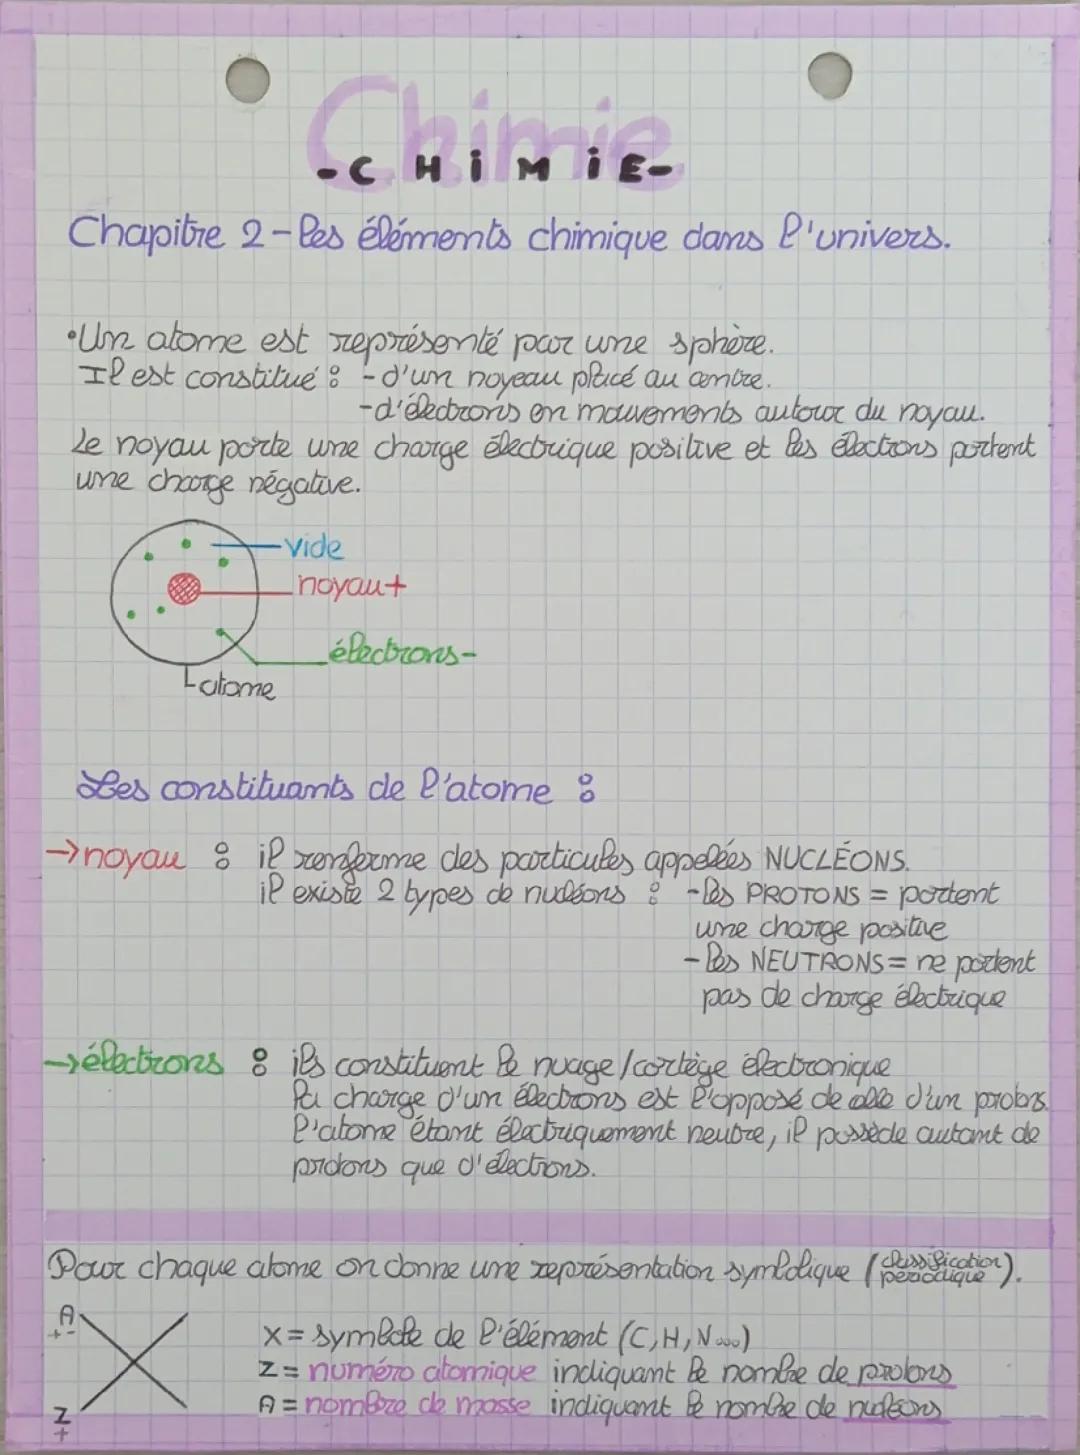 Chimie
-CHiMiE-
Chapitre 2 - les éléments chimique dans l'univers.
•Un atome est représenté par une sphère.
Il est constitué : - d'un noyeau placé au centre.
-d'électrons en mouvements autour du noyau.
Le noyau porte une charge électrique positive et les électrons portent
une charge négative.
vide
noyau+
électrons-
atome
Les constituants de l'atome :
→noyau : il renferme des particules appelées NUCLÉONS.
il existe 2 types de nucléons : -les PROTONS = portent
une charge positive
-les NEUTRONS= ne portent
pas de charge électrique
→électrons : ils constituent le nuage/cortège électronique
la charge d'un électrons est l'opposé de celle d'un protons.
l'atome étant électriquement neutre, il possède autant de
protons que d'électrons.
Pour chaque atome on donne une représentation symbolique (classification périodique).
A
+-
X
Z
+
X= symbole de l'élément (C, H, N...)
Z= numéro atomique indiquant le nombre de protons
A= nombre de masse indiquant le nombre de nucléons